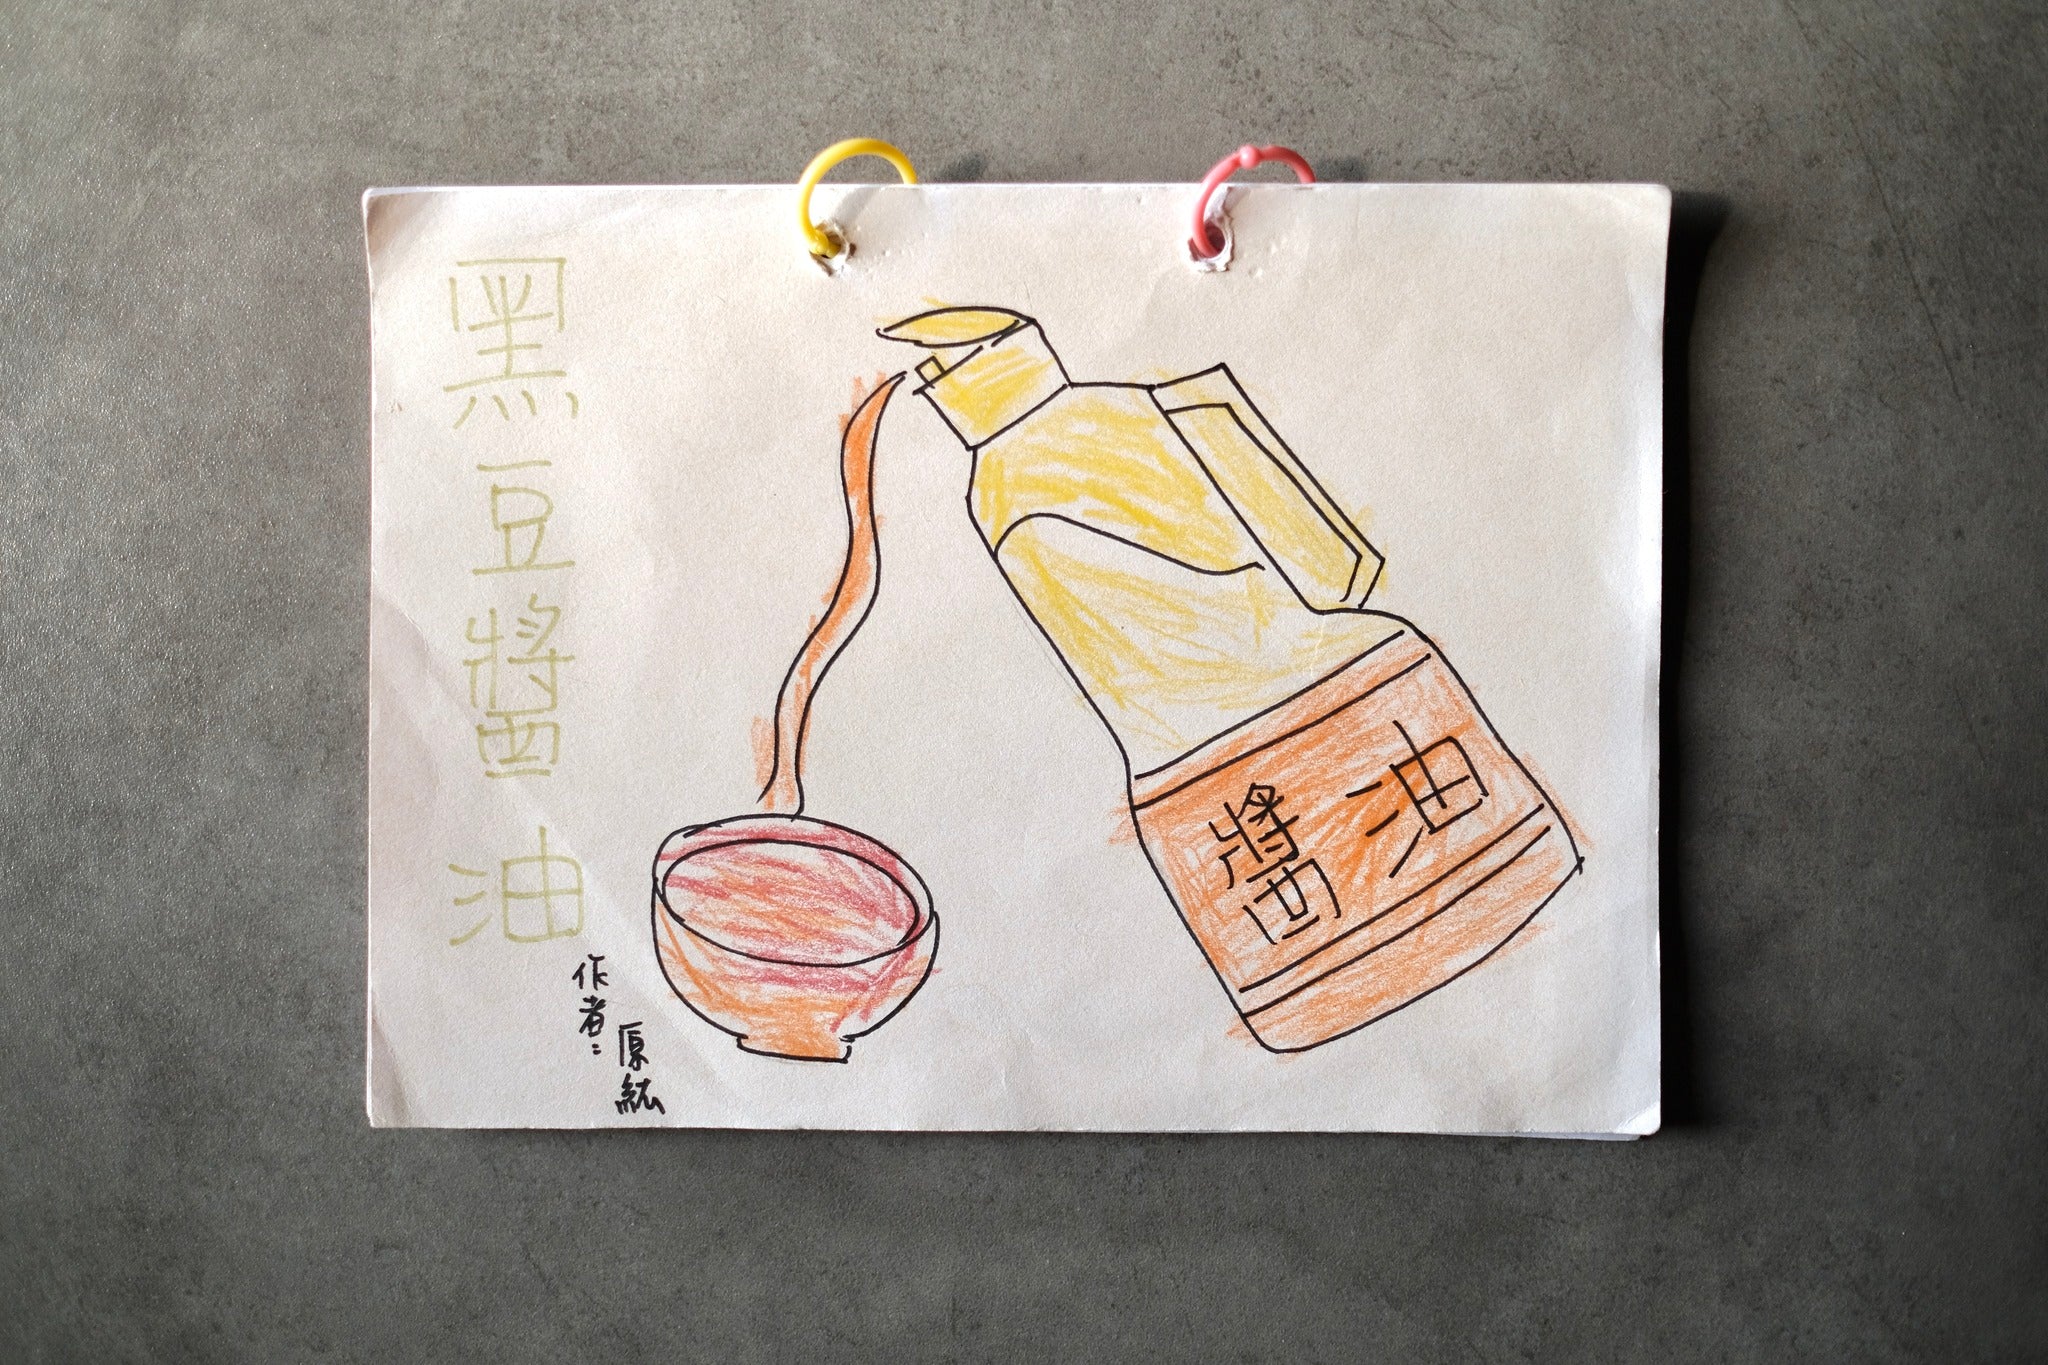 黑豆醬油
作者：
原紘
醬油